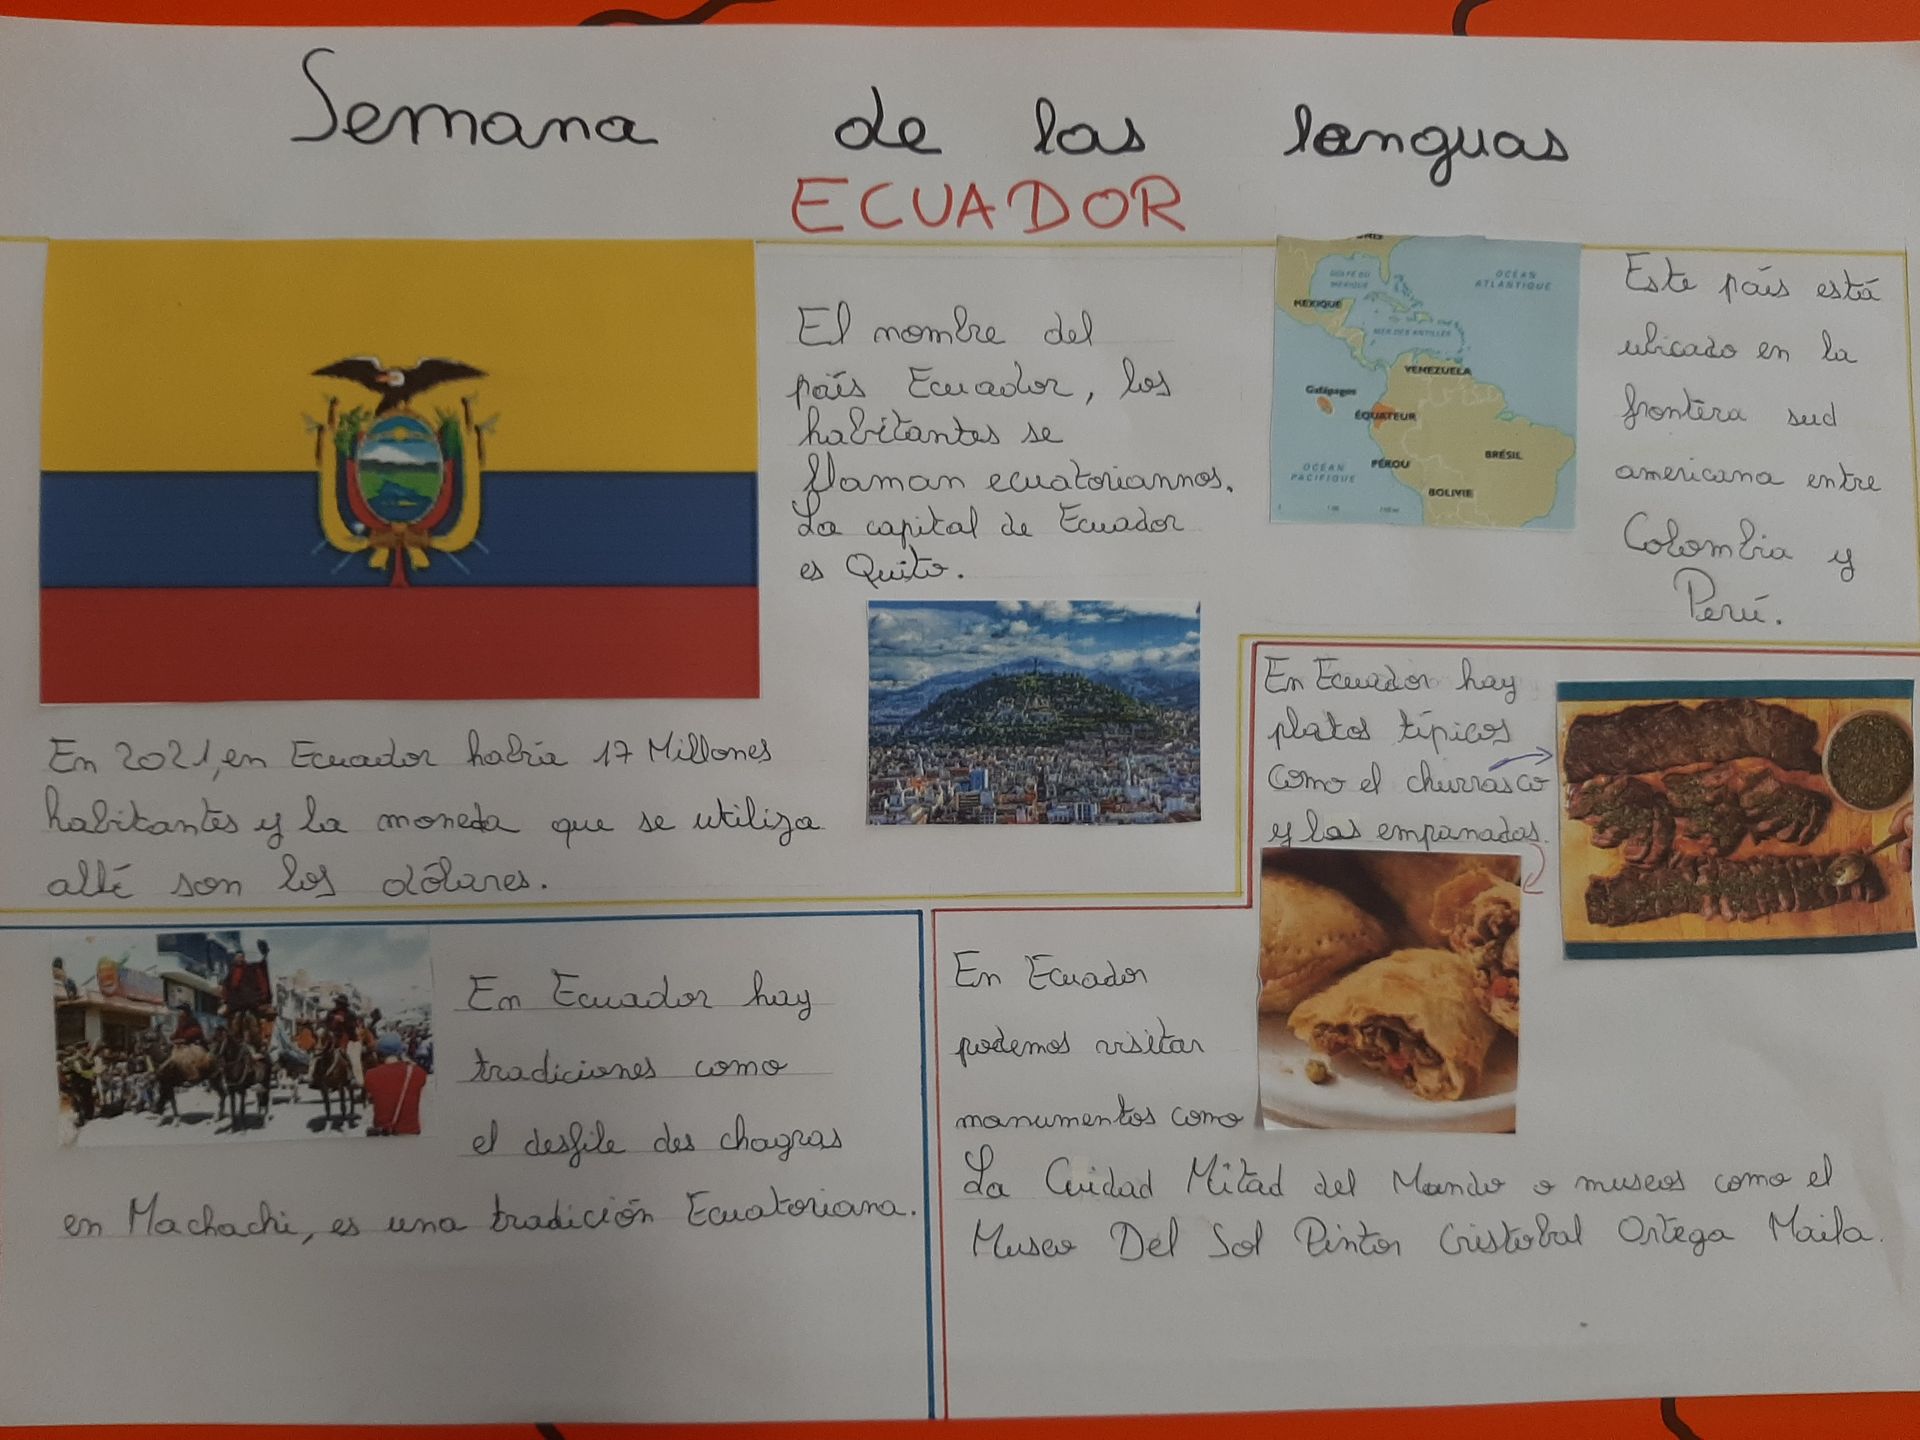 Semana de las lenguas
ECUADOR
El nombre del
país Ecuador, los
habitantes se
llaman ecuatoriannos.
La capital de Ecuador
es Quito.
GOLFE DU
MEXIQUE
OCÉAN
ATLANTIQUE
MEXIQUE
MER DES ANTILLES
VENEZUELA
Galápagos
ÉQUATEUR
PÉROU
BRÉSIL
OCÉAN
PACIFIQUE
BOLIVIE
Este país está
ubicado en la
frontéra sud
americana entre
Colombia y
Perú.
En 2021, en Ecuador había 17 Millones
habitantes y la moneda que se utiliza
allí son los dólares.
En Ecuador hay
platos típicos
como el churrasco
y las empanadas.
En Ecuador hay
tradiciones como
el desfile des chagras
en Machachi, es una tradición Ecuatoriana.
En Ecuador
podemos visitar
monumentos como
La Cuidad Mitad del Mundo o museos como el
Museo Del Sol Pintor Cristobal Ortega Maila.